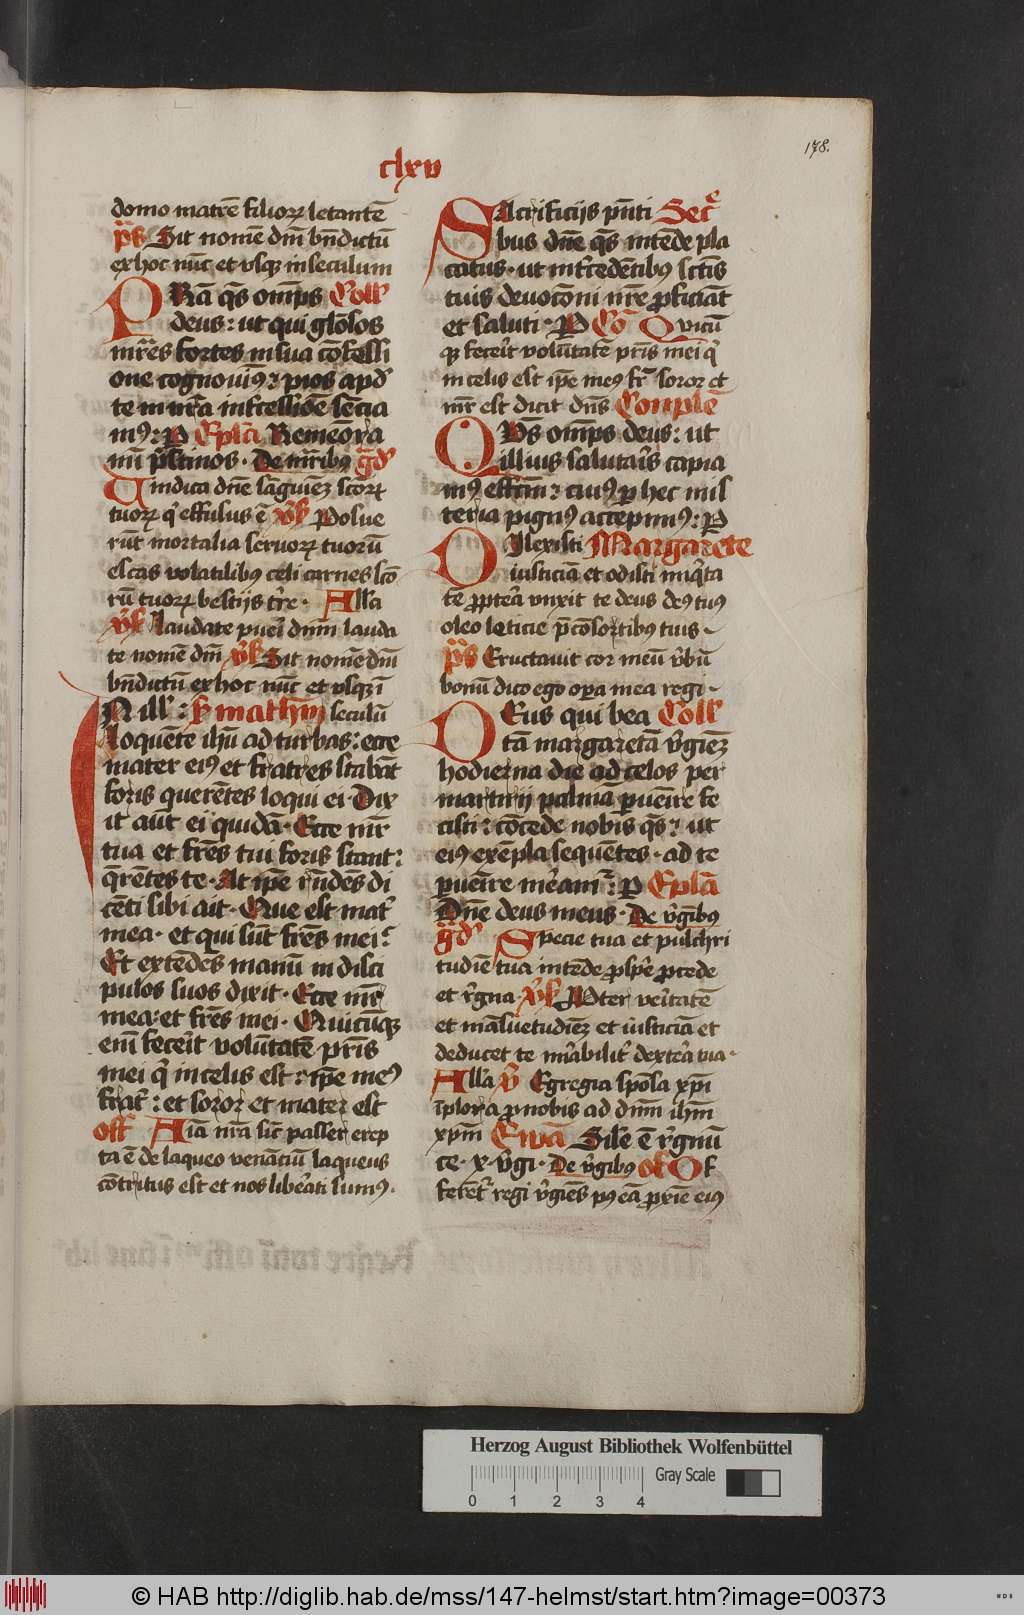 178.
clxv
domo matrē filioꝝ letantē
p̄s Sit nomē dnī bn̄dictū
ex hoc nūc et vsqꝫ in seculum
PRā q̄s omp̄s Coll̄
deus : ut qui glōsos
mr̄es fortes in sua cōfessi
one cognouimꝰ : pios apd̓
te in nr̄a int̓cessiōe sēcia
mꝰ : P Ep̄la Rememora
mī p̄stinos · De mr̄ibꝰ gd̓
Uindica dn̄e sāguinēꝫ scōꝝ
tuoꝝ q̓ effusus ē v̓s Posue
rūt mortalia seruoꝝ tuorū
escas volatilibꝰ celi carnes scō
rū tuoꝝ bestijs t̓re · All̓a
v̓s laudate pueī dnm lauda
te nomē dnī v̓s Sit nomē dnī
bn̄dictū ex hoc nūc et vsqꝫ ī
IN ill̓ : s̄ mathm̄ seculū
loquēte ihū ad turbas : ecce
mater eiꝰ et fratres stabāt
foris querētes loqui ei · Dix
it aūt ei quidā · Ecce mr̄
tua et fr̄es tui foris stant :
q̄rentes te · At ip̄e rn̄dēs di
cēti sibi ait · Que est mat̓
mea · et qui sūt fr̄es mei ·
Et extēdēs manū in disci
pulos suos dixit · Ecce mr̄
mea : et fr̄es mei · Quicūqꝫ
enī fecerit volūtatē pr̄is
mei q̓ in celis est : ip̄e meꝰ
frat̓ : et soror et mater est
off̓ Aīa nr̄a sic̄ passer erep
ta ē de laqueo venātiū laqueus
cōtritus est et nos liberati sumꝰ ·
SAcrificijs pn̄ti Sec̄
bus dn̄e q̄s intēde pla
catus · ut int̓cedētibꝰ sctīs
tuis deuocōni nr̄e ꝓficiāt
et saluti · P Cō Quicū
qꝫ fecerit volūtatē pr̄is mei q̓
in celis est ip̄e meꝰ fr̄ soror et
mr̄ est dicit dn̄s Complē
QVs omp̄s deus : ut
illius salutar̄s capia
mꝰ effctm : cuiꝰ ꝑ hec mis
teria pignꝰ accepimꝰ : P
Dilexisti Margarete
iusticiā et odisti iniq̓ta
tē ꝓpterā vnxit te deus deꝰ tuꝰ
oleo leticie p̄ cōsortibꝰ tuis ·
p̄s Eructauit cor meū v̓bū
bonū dico ego oꝑa mea regi ·
DEus qui bea Coll̄
tā margaretā v̓gīeꝫ
hodierna die ad celos per
martirij palmā ꝑuenire fe
cisti : cōcede nobis q̄s : ut
eiꝰ exēpla sequētes · ad te
ꝑuenire me̓amr̄ : P Ep̄la
Dn̄e deus meus · De v̓gībꝰ
gd̓ Specie tua et pulchri
tudīe tua intēde ꝓsp̄e ꝓcede
et r̓gna · v̓s Pter veritatē
et māsuetudīeꝫ et iusticiā et
deducet te mirabilit̓ dextera tua ·
All̓a v̓ Egregia spōsa xp̄i
īplora ꝓ nobis ad dnm ihm̄
xp̄m Ewā Sile ē r̓gnū
ce · x · v̓gi · De v̓gibꝰ of Of
ferēt̓ regi v̓gīes pꝰ eā ꝓxīe eiꝰ
Herzog August Bibliothek Wolfenbüttel
Gray Scale
0 1 2 3 4
© HAB http://diglib.hab.de/mss/147-helmst/start.htm?image=00373